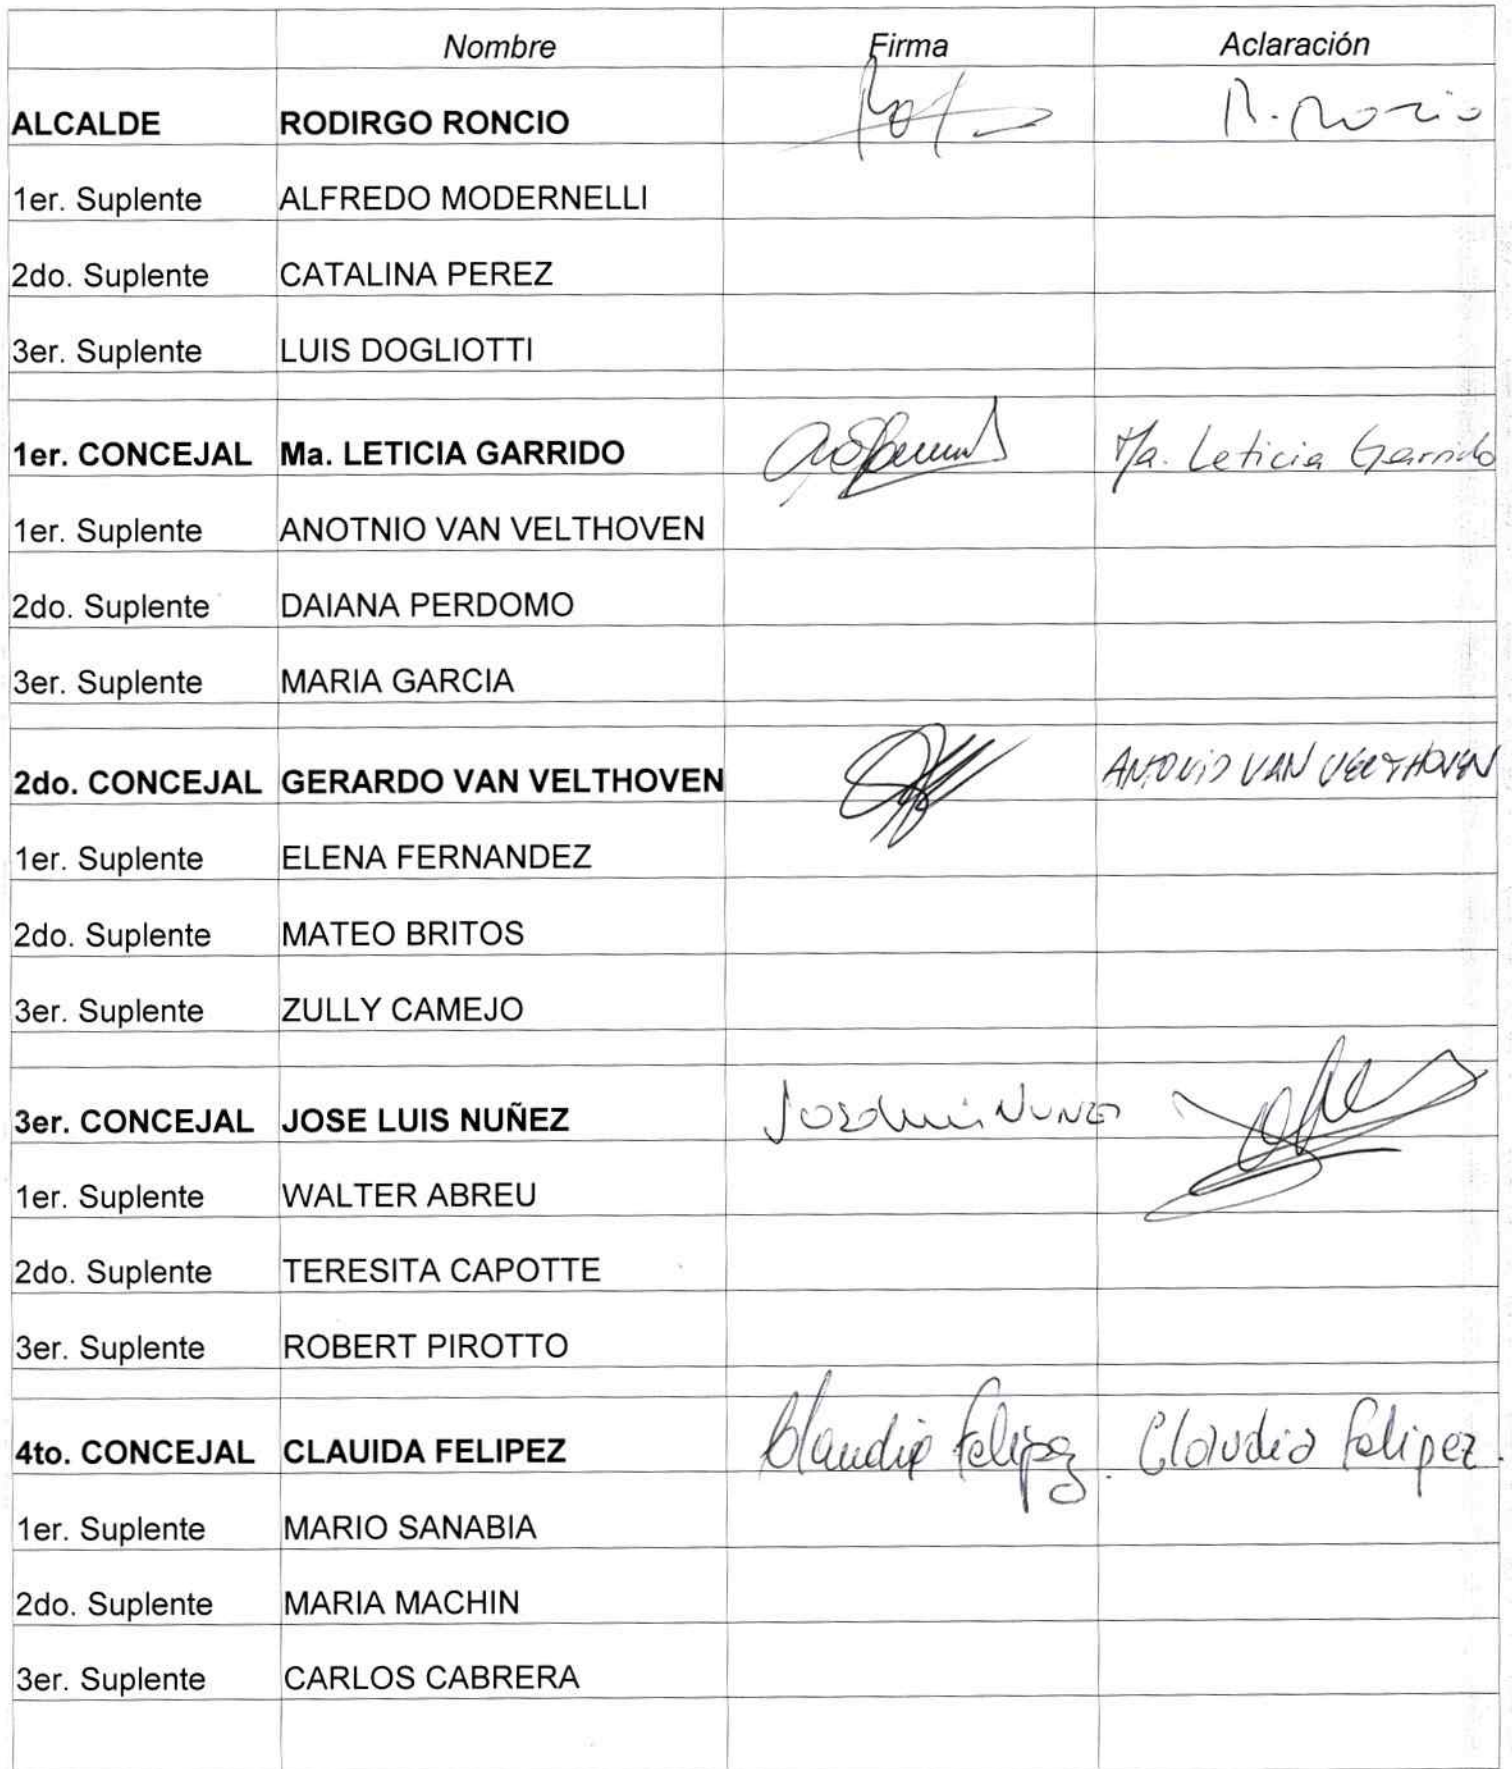 Nombre Firma Aclaración
ALCALDE RODIRGO RONCIO R. Roncio
1er. Suplente ALFREDO MODERNELLI
2do. Suplente CATALINA PEREZ
3er. Suplente LUIS DOGLIOTTI
1er. CONCEJAL Ma. LETICIA GARRIDO Ma. Leticia Garrido
1er. Suplente ANOTNIO VAN VELTHOVEN
2do. Suplente DAIANA PERDOMO
3er. Suplente MARIA GARCIA
2do. CONCEJAL GERARDO VAN VELTHOVEN ANTONIO VAN VELTHOVEN
1er. Suplente ELENA FERNANDEZ
2do. Suplente MATEO BRITOS
3er. Suplente ZULLY CAMEJO
3er. CONCEJAL JOSE LUIS NUÑEZ Jose Luis Nunez
1er. Suplente WALTER ABREU
2do. Suplente TERESITA CAPOTTE
3er. Suplente ROBERT PIROTTO
4to. CONCEJAL CLAUIDA FELIPEZ Claudia Felipez. Claudia Felipez.
1er. Suplente MARIO SANABIA
2do. Suplente MARIA MACHIN
3er. Suplente CARLOS CABRERA